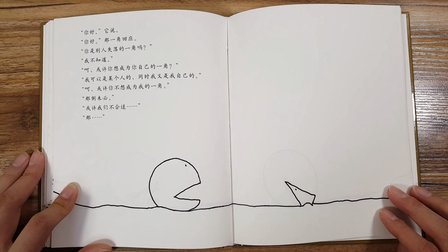 “你好，”它说。
“你好，”那一角回应。
“你是别人失落的一角吗？”
“我不知道。”
“呵，或许你想成为你自己的一角？”
“我可以是某个人的，同时我又是我自己的。”
“呵，或许你不想成为我的一角。”
“那倒未必。”
“或许我们不合适……”
“那……”